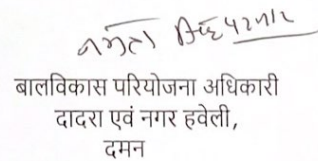 बालविकास परियोजना अधिकारी
दादरा एवं नगर हवेली,
दमन